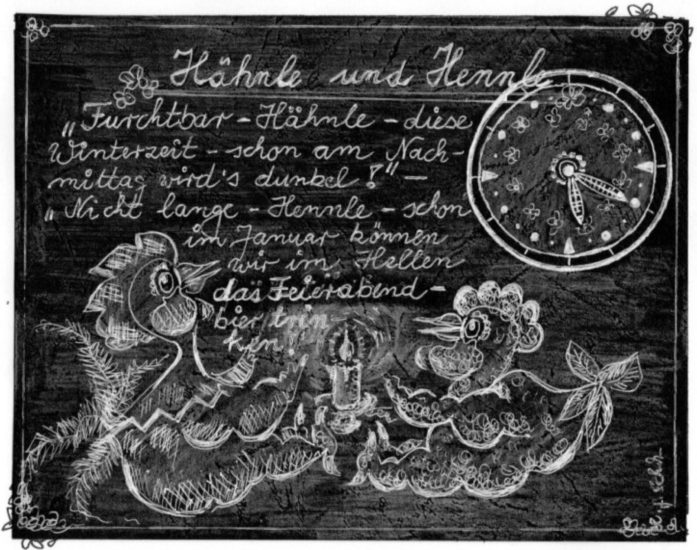 Hähnle und Hennle
„Furchtbar – Hähnle – diese
Winterzeit – schon am Nach-
mittag wird's dunkel!" –
„Nicht lange – Hennle – schon
im Januar können
wir im Hellen
das Feierabend-
bier trin
ken!